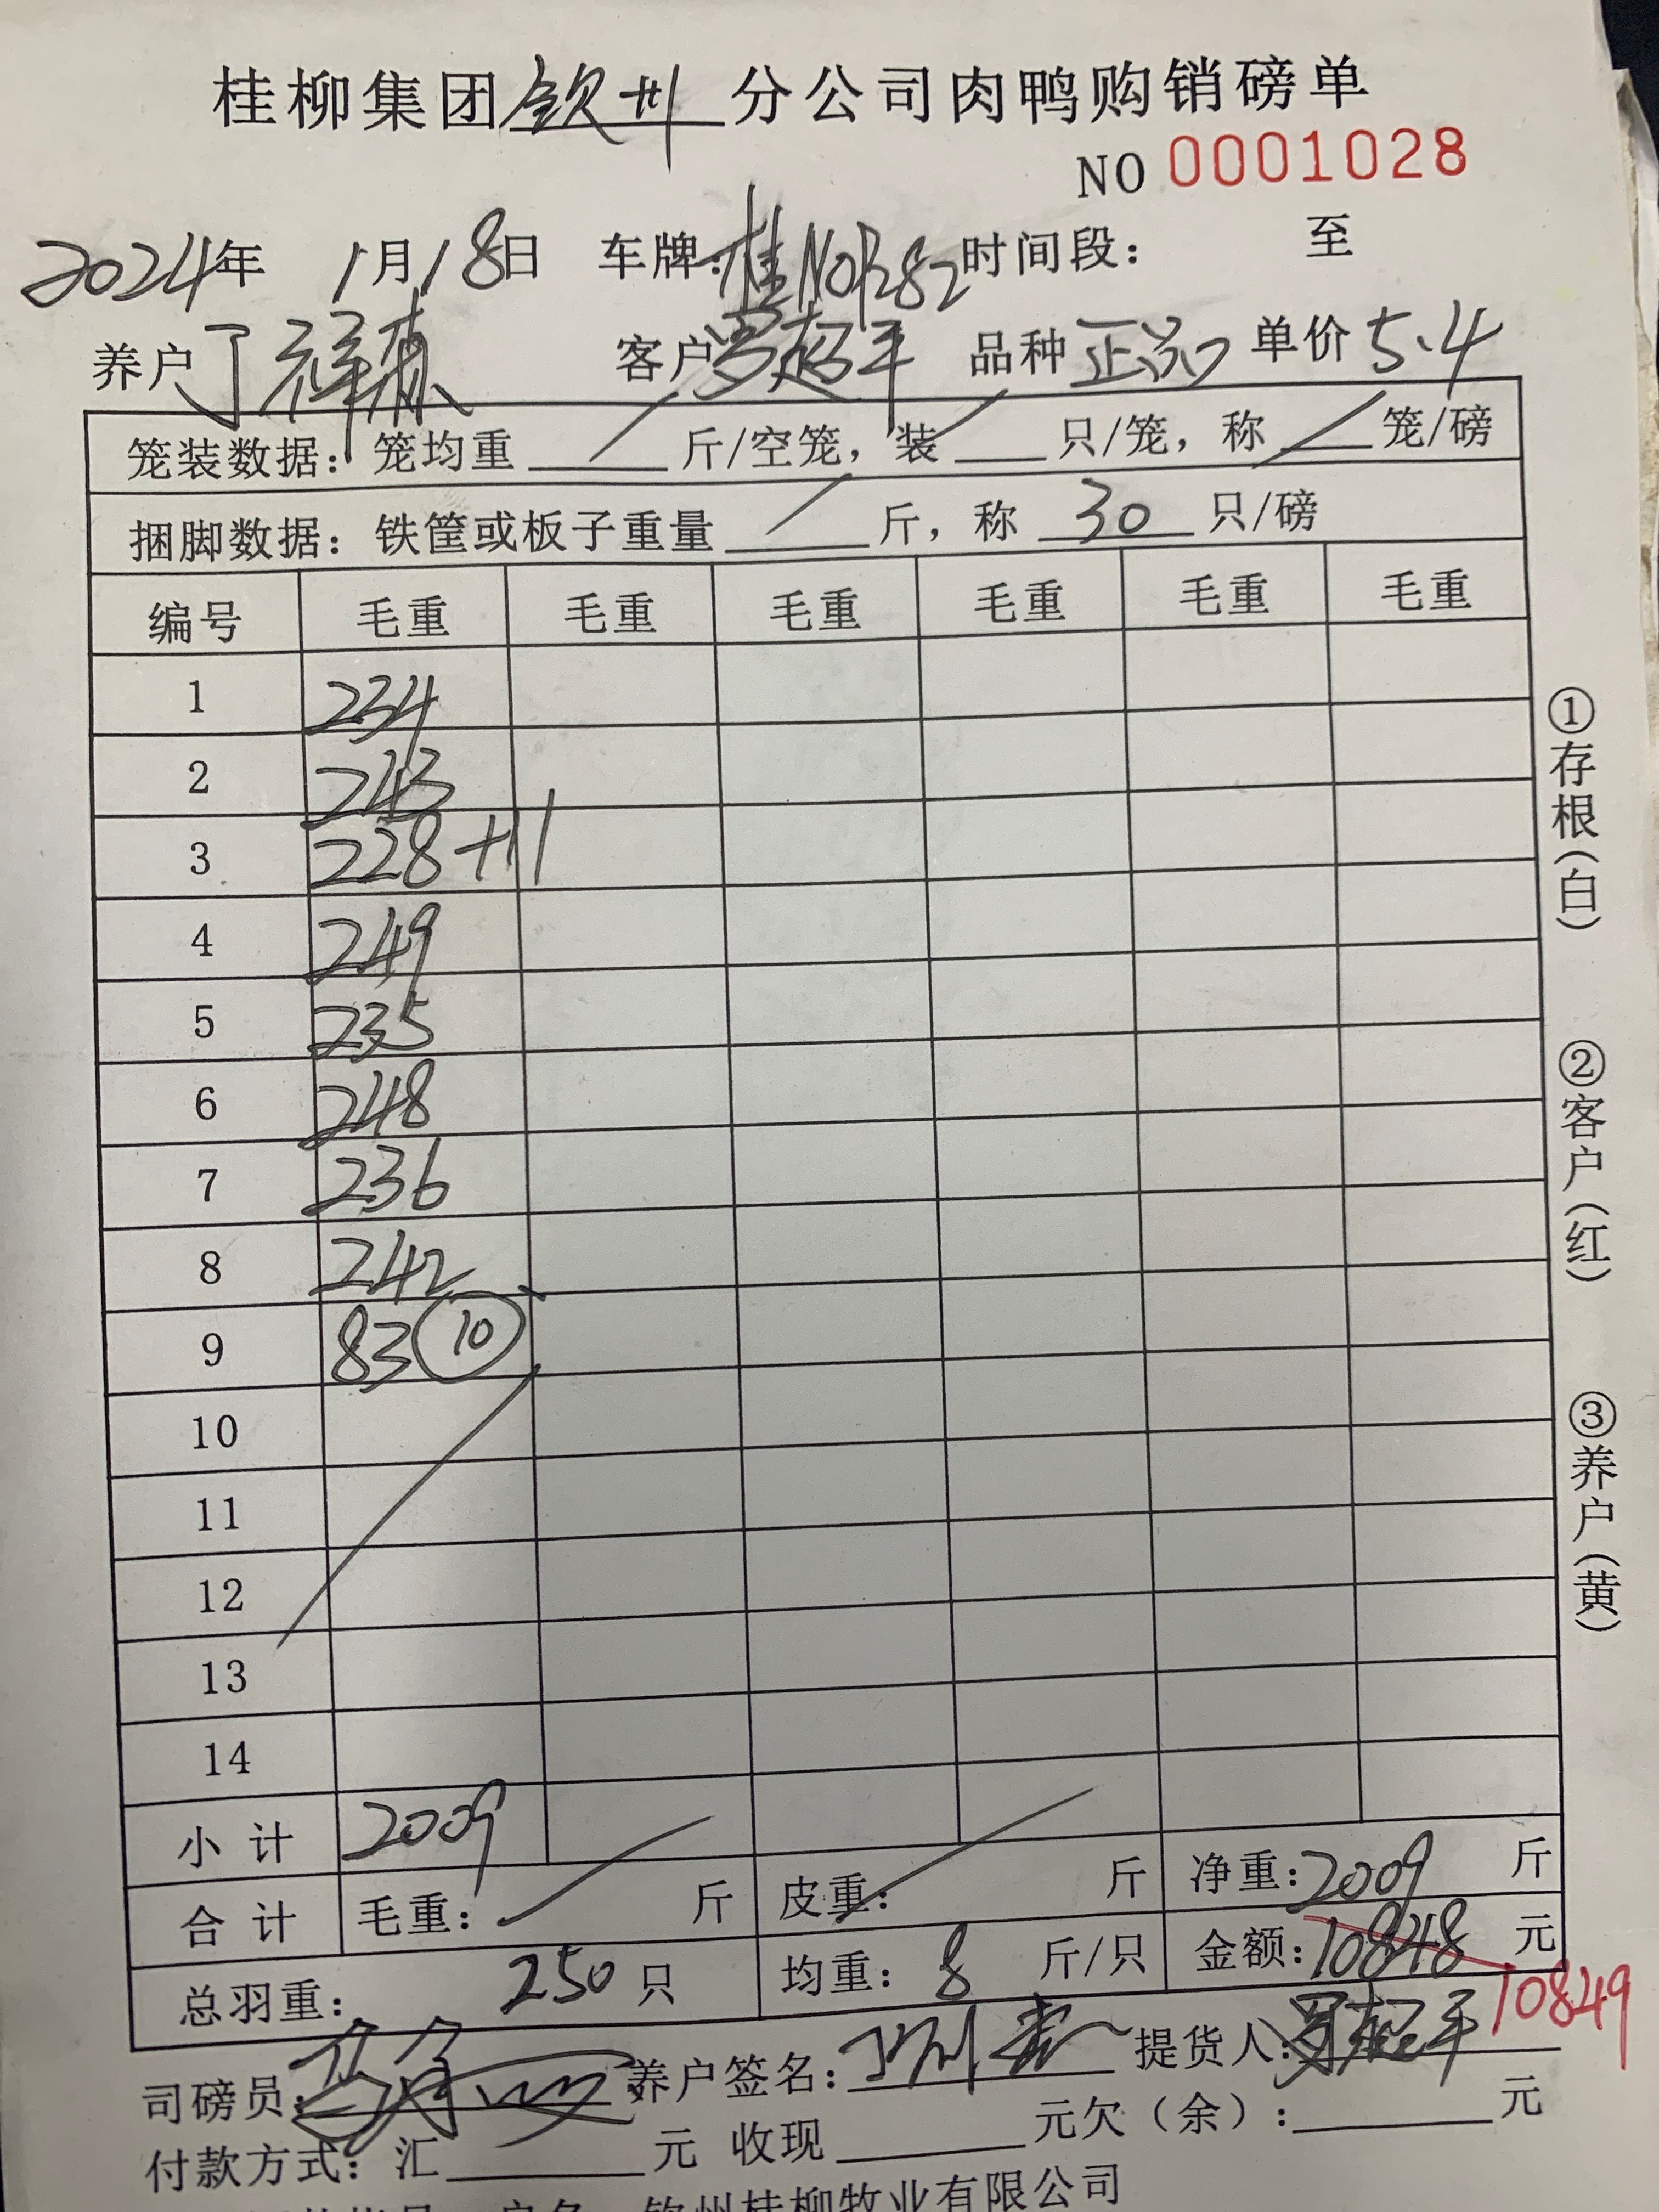 桂柳集团钦州分公司肉鸭购销磅单
NO 0001028
2024年 1月18日 车牌:桂N0R282 时间段: 至
养户 丁祥森 客户 罗超平 品种 正常 单价 5.4
笼装数据: 笼均重 / 斤/空笼, 装 / 只/笼, 称 / 笼/磅
捆脚数据: 铁筐或板子重量 / 斤, 称 30 只/磅
编号 毛重 毛重 毛重 毛重 毛重 毛重
1 234
2 243
3 228+11
4 249
5 235
6 248
7 236
8 242
9 83 ⑩
10
11
12
13
14
小计 2009
合计 毛重: / 斤 皮重: / 斤 净重: 2009 斤
总羽重: 250 只 均重: 8 斤/只 金额: 10848 元
10849
司磅员: 养户签名: 提货人: 罗超平
付款方式: 汇 元 收现 元欠(余): 元
钦州桂柳牧业有限公司
①存根(白)
②客户(红)
③养户(黄)